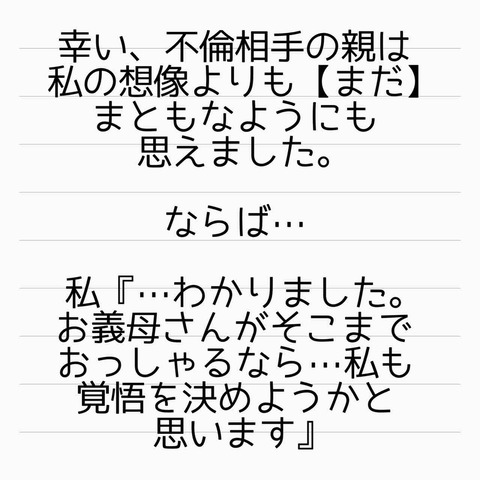 幸い、不倫相手の親は
私の想像よりも【まだ】
まともなようにも
思えました。
ならば…
私『…わかりました。
お義母さんがそこまで
おっしゃるなら…私も
覚悟を決めようかと
思います』